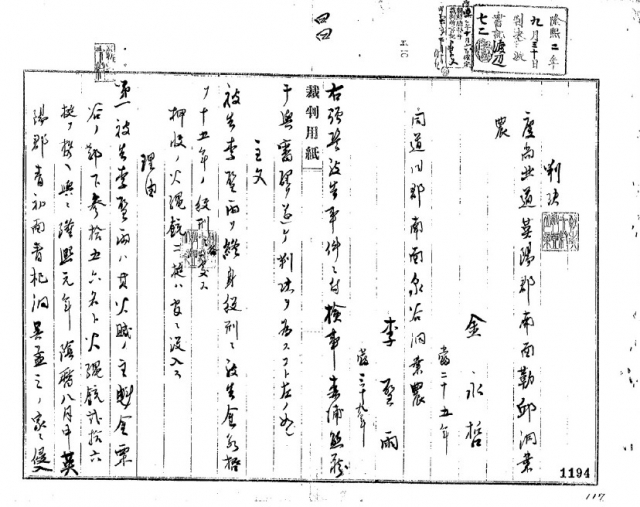 隆熙二年
九月三十日
判決
慶尚北道英陽郡南面勒邱洞業
農
金永哲
當二十五年
同道同郡南面泉谷洞業農
李聖雨
當三十九年
右强盜被告事件ニ付檢事
干與審理ヲ遂ケ判決ヲ為スコト左ノ如シ
裁判用紙
主文
被告李聖雨ヲ終身役刑ニ被告金永哲
ヲ十五年ノ役刑ニ處ス
押收ノ火繩銃二挺ハ官ニ沒入ス
理由
第一被告李聖雨ハ火賊ノ主魁金
谷ノ部下參拾五六名ト火繩銃貳拾六
挺ヲ携ヘ與ニ隆熙元年陰曆八月中英
陽郡青杞面青杞洞吳孟ノ家ニ侵入
1194
117